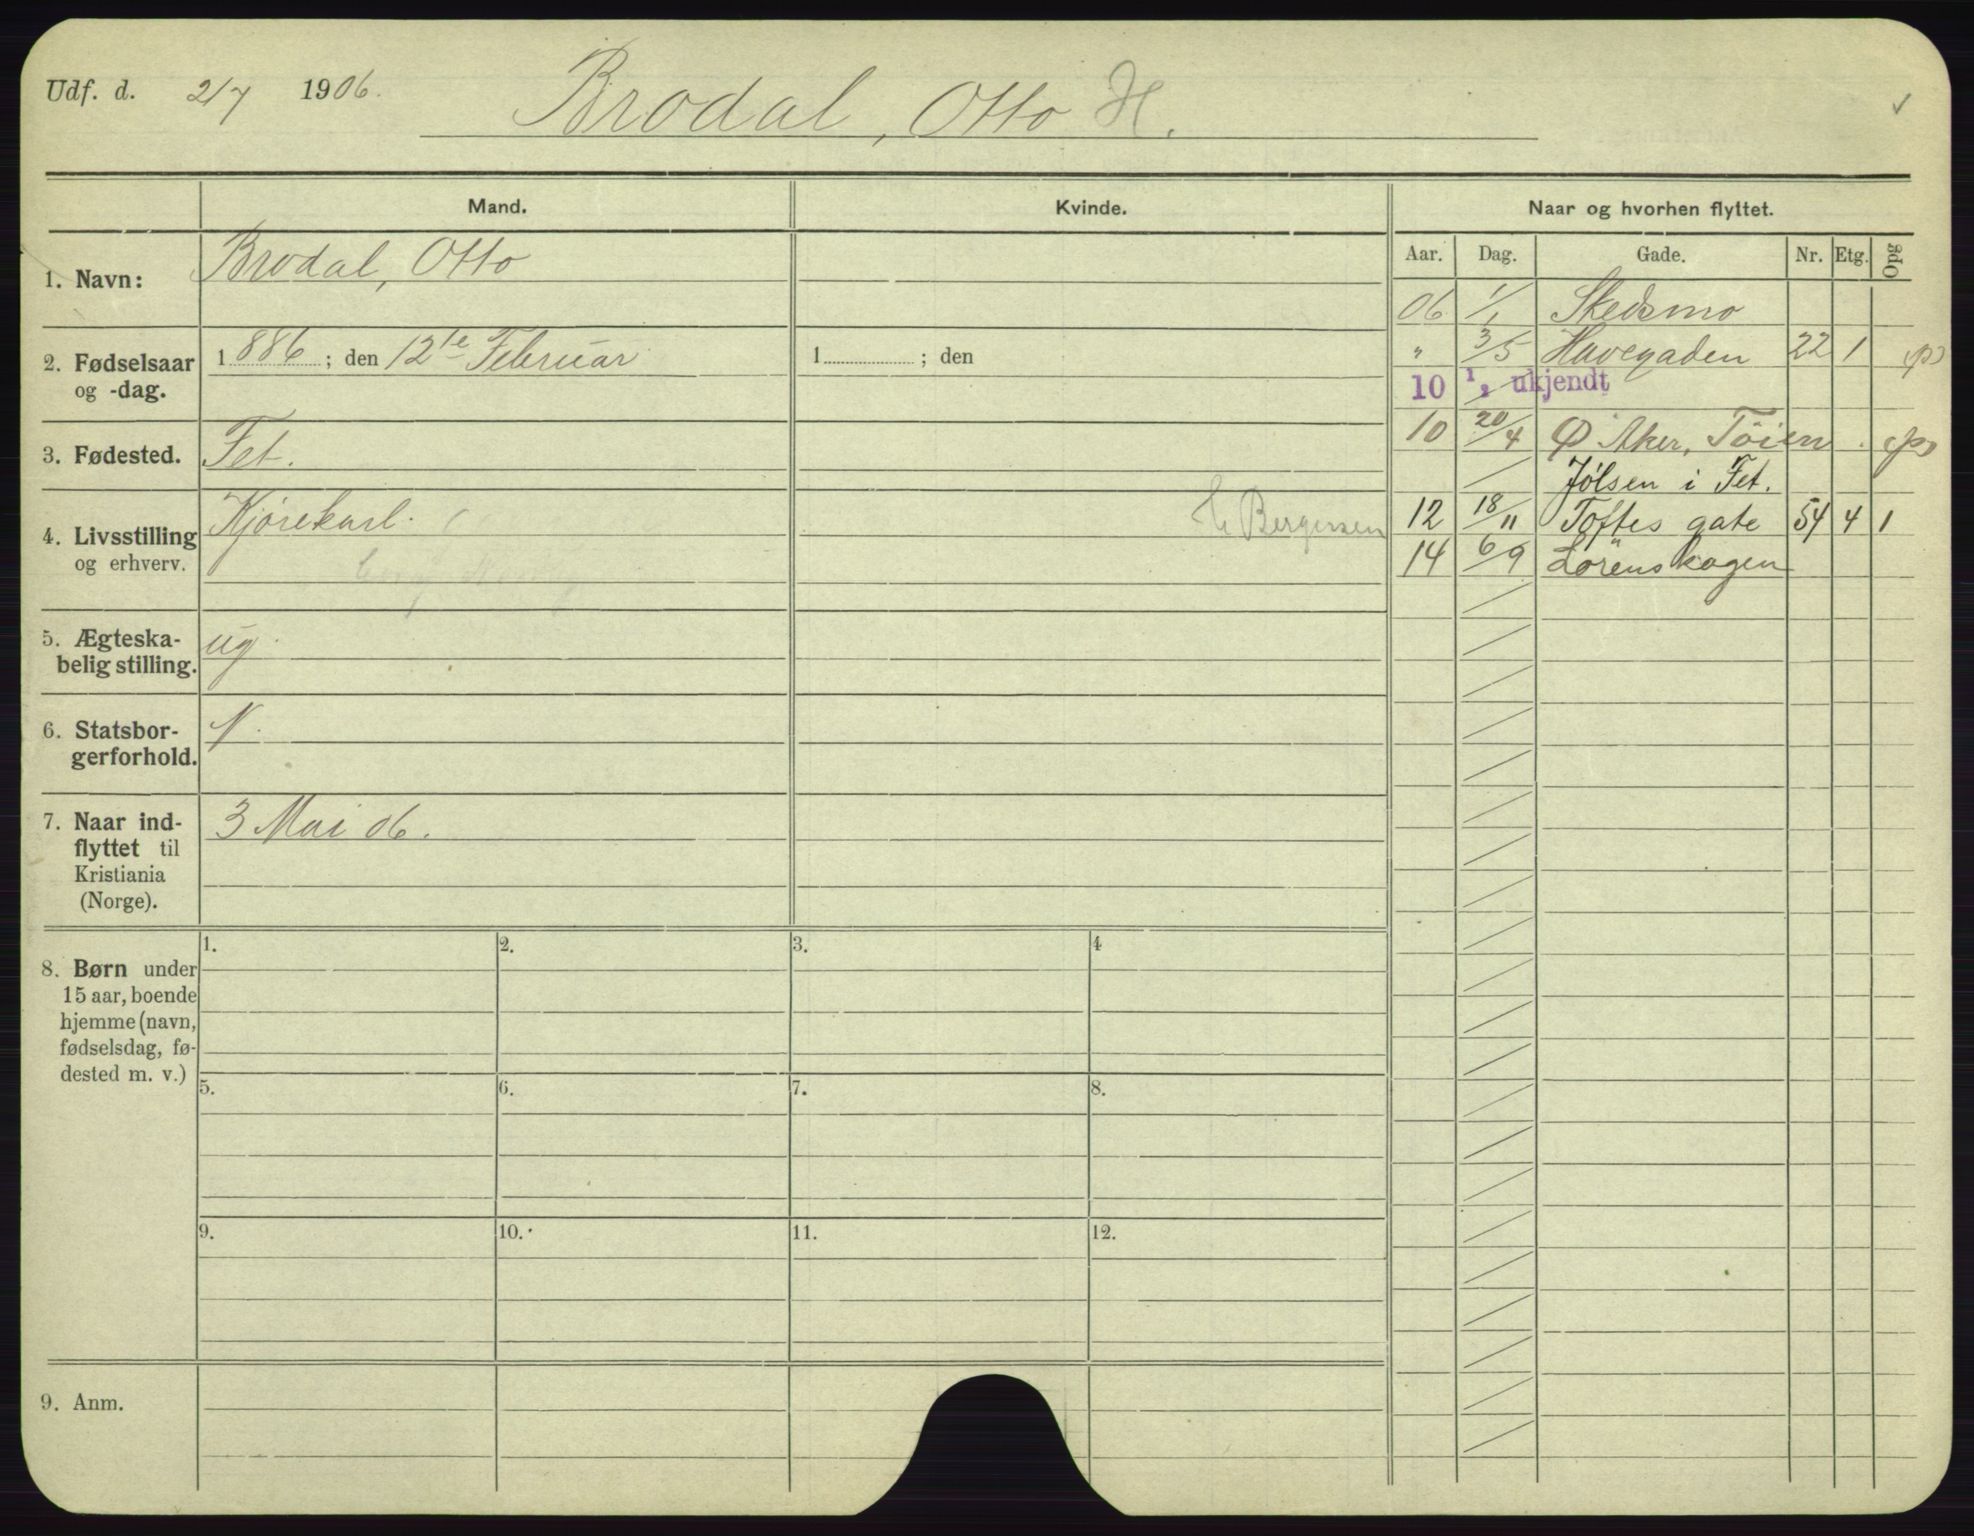 Udf. d. 2/7 1906. Brodal, Otto H.
Mand. Kvinde. Naar og hvorhen flyttet.
Aar. Dag. Gade. Nr. Etg. Opg
1. Navn: Brodal, Otto
2. Fødselsaar og -dag. 1886; den 12te Februar 1 ; den
3. Fødested. Fet.
4. Livsstilling og erhverv. Kjørekarl. Bergersen
5. Ægteska-
belig stilling. ug.
6. Statsbor-
gerforhold. N.
7. Naar ind-
flyttet til
Kristiania
(Norge). 3 Mai 06.
06 1/1 Skedsmo
" 3/5 Havegaden 22 1 (p)
10 1/1 ukjendt
10 20/4 Ø Aker, Töien. (p)
Jølsen i Fet.
12 18/11 Toftes gate 54 4 1
14 6/9 Lörenskogen
8. Børn under
15 aar, boende
hjemme (navn,
fødselsdag, fø-
dested m. v.)
1. 2. 3. 4
5. 6. 7. 8.
9. 10. 11. 12.
9. Anm.